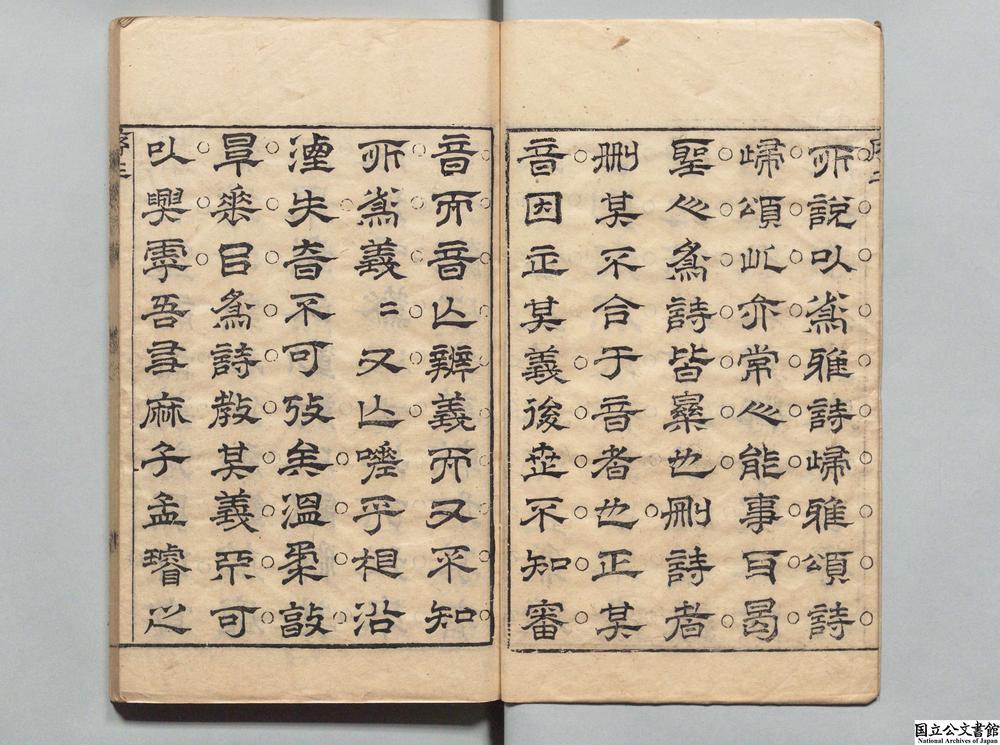 序二
所說以為雅詩歸雅頌詩
歸頌此亦常人能事曷
聖人為詩皆樂也刪詩者
刪其不合于音者也正其
音因正其義後世不知審
音而音亡辨義而又不知
所為義〻又亡嗟乎相沿
湮失杳不可攷矣溫柔敦
厚㠯為詩教其義可
以興虖吾麻子孟璿之
序三
国立公文書館
National Archives of Japan